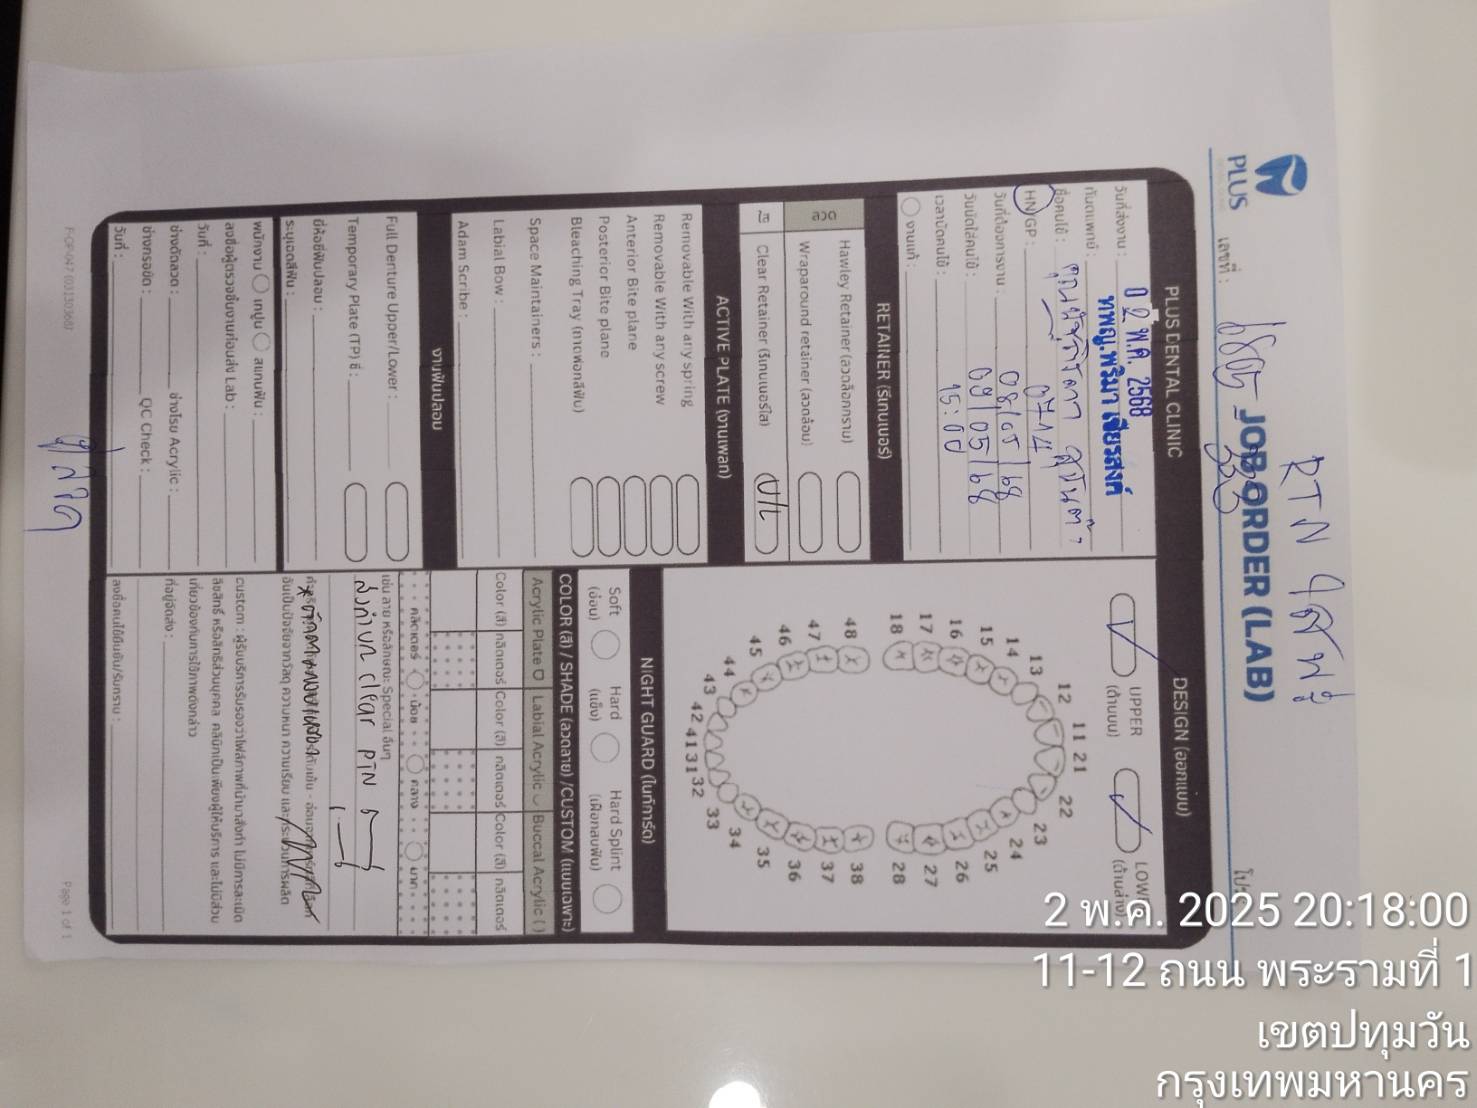 RTN ใสฟรี
PLUS
เลขที่ :
JOB ORDER (LAB)
PLUS DENTAL CLINIC
วันที่ส่งงาน : 0 2 พ.ค. 2568
ทันตแพทย์ : ทพญ.พริมา เชียรสงค์
ชื่อคนไข้ :
HN/GP : 0714
วันที่ต้องการงาน : 08/05/68
วันนัดใส่คนไข้ : 09/05/68
เวลานัดคนไข้ : 15:00
งานแก้ :
RETAINER (รีเทนเนอร์)
ลวด
Hawley Retainer (ลวดล็อกกราม)
Wraparound retainer (ลวดล้อม)
ใส
Clear Retainer (รีเทนเนอร์ใส) U/L
ACTIVE PLATE (งานเพลท)
Removable With any spring
Removable With any screw
Anterior Bite plane
Posterior Bite plane
Bleaching Tray (ถาดฟอกสีฟัน)
Space Maintainers :
Labial Bow :
Adam Scribe :
งานฟันปลอม
Full Denture Upper/Lower :
Temporary Plate (TP) ซี่ :
ยี่ห้อซี่ฟันปลอม :
ระบุเฉดสีฟัน :
พนักงาน เทปูน สแกนฟัน :
ลงชื่อผู้ตรวจชิ้นงานก่อนส่ง Lab :
วันที่ :
ช่างดัดลวด : ช่างโรย Acrylic :
ช่างกรอขัด : QC Check :
วันที่ :
DESIGN (ออกแบบ)
UPPER
(ด้านบน)
LOWE
(ด้านล่าง)
18 17 16 15 14 13 12 11 21 22 23 24 25 26 27 28
48 47 46 45 44 43 42 41 31 32 33 34 35 36 37 38
NIGHT GUARD (ไนท์การ์ด)
Soft Hard Hard Splint
(อ่อน) (แข็ง) (เฝือกสบฟัน)
COLOR (สี) / SHADE (ลวดลาย) /CUSTOM (แบบเฉพาะ)
Acrylic Plate Labial Acrylic Buccal Acrylic ( )
Color (สี) กลิตเตอร์ Color (สี) กลิตเตอร์ Color (สี) กลิตเตอร์
กลิตเตอร์ น้อย กลาง มาก
เช่น ลาย หรือลักษณะ Special อื่นๆ
clear
อันเป็นปัจจัยจากวัสดุ ความหนา ความเรียบ และกระบวนการผลิต
custom : ผู้รับบริการรับรองว่าไฟล์ภาพที่นำมาสั่งทำ ไม่มีการละเมิด
ลิขสิทธิ์ หรือสิทธิส่วนบุคคล คลินิกเป็นเพียงผู้ให้บริการ และไม่มีส่วน
เกี่ยวข้องกับการใช้ภาพดังกล่าว
ที่อยู่จัดส่ง :
ลงชื่อคนไข้ยืนยัน/รับทราบ :
Page 1 of 1
2 พ.ค. 2025 20:18:00
11-12 ถนน พระรามที่ 1
เขตปทุมวัน
กรุงเทพมหานคร